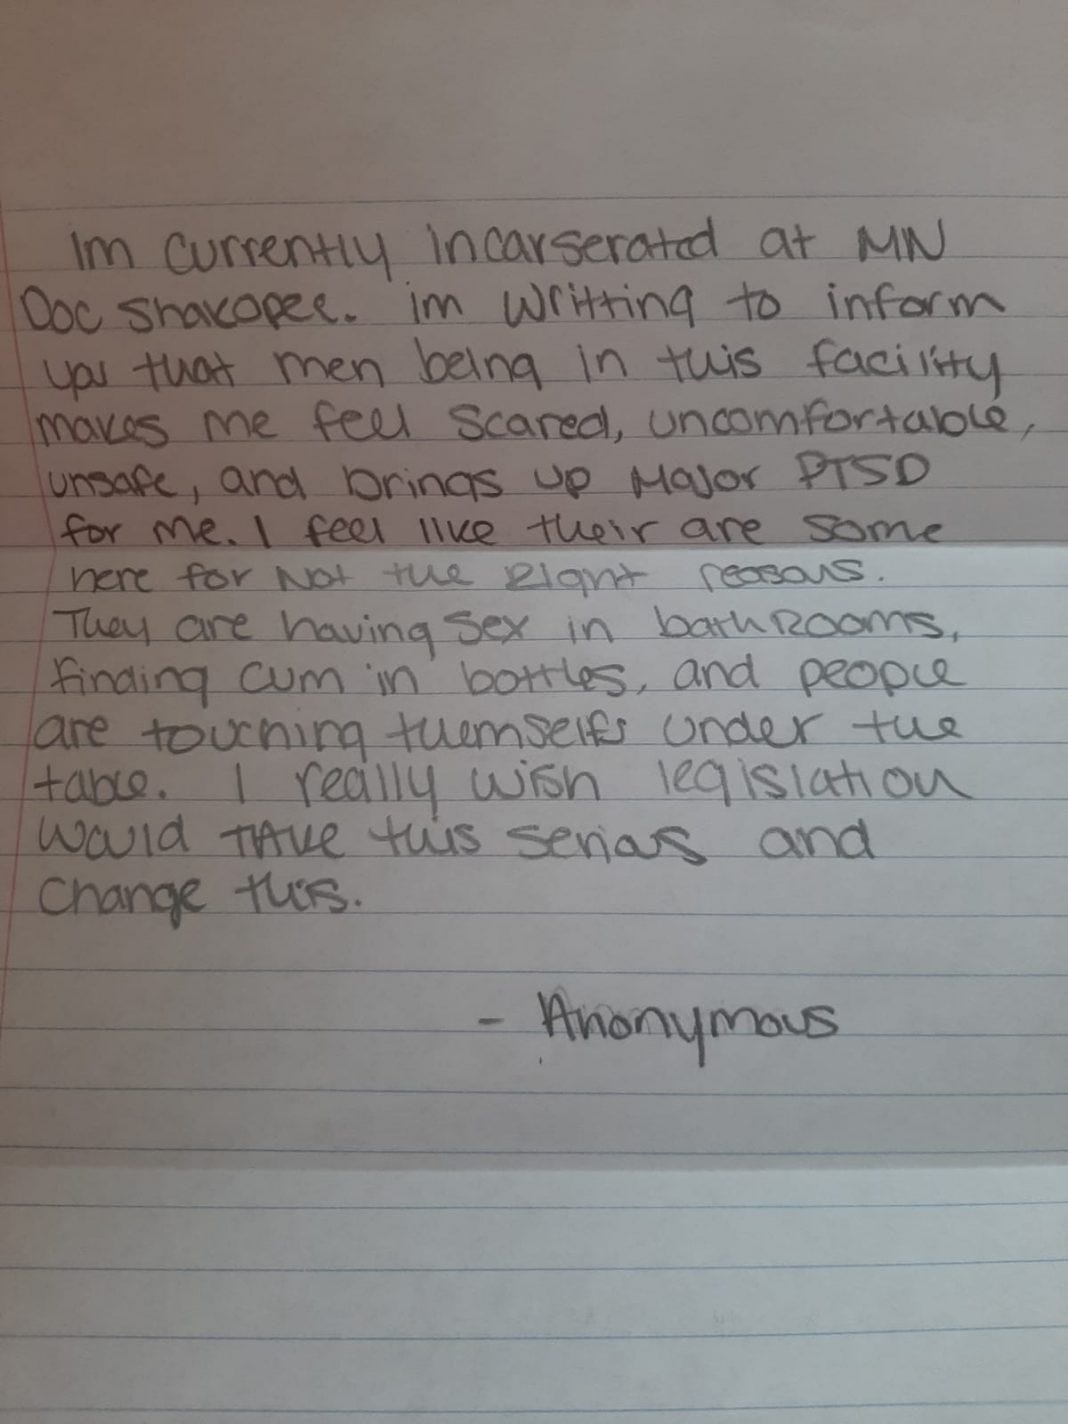 Im currently incarserated at MN
Doc Shakopee. im writting to inform
you that men being in this facility
makes me feel scared, uncomfortable,
unsafe, and brings up Major PTSD
for me. I feel like their are some
here for Not the Right reasons.
They are having sex in bathRooms,
finding cum in bottles, and people
are touching themselfs under the
table. I really wish legislation
would TAke this serious and
change this.
- Anonymous